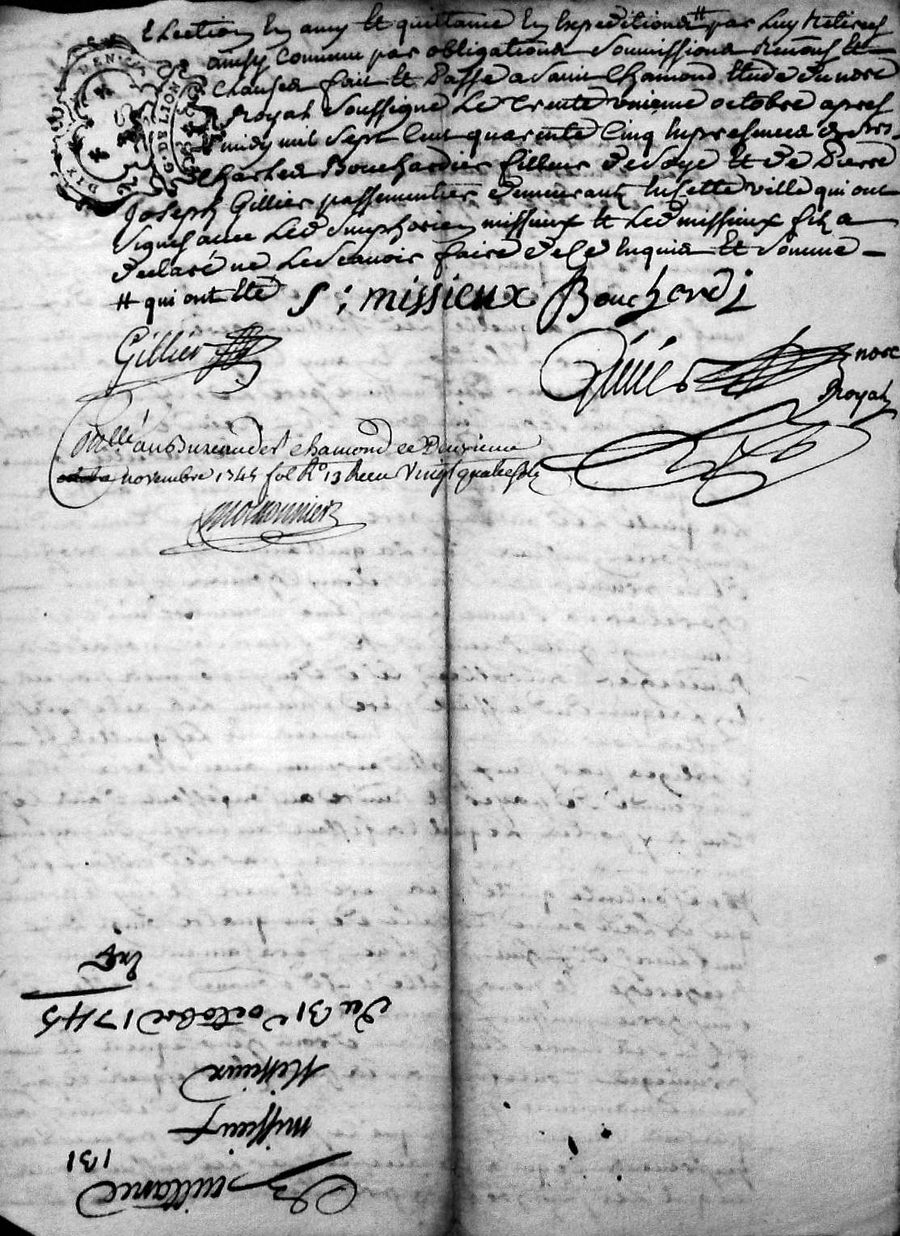 Election en amy et quittance en Expeditions # par luy retirees
ainsy convenu par obligations soumissions renons et
clauses fait et passé a Saint Chamond Etude du nore
Royal soussigné le trente unieme octobre apres
midy mil sept cent quarente cinq en presences de srs
Charles Bouchardier filleur de soye et de Pierre
Joseph Gillier passementier demeurants en cette ville qui ont
signé avec led Simphorien missieux et led missieux fils a
declaré ne le scavoir faire de ce enquis et sommé -
# qui ont été
S: missieux Bouchardi
Gillier
nore
Royal
Collé au Bureau de St chamond ce Deuxieme
novembre 1745 fol Ro 13 Receu Vingt quatre sols
DE LION
DIX DEN
Quittance
131
missieux
Messieux
du 31e octobre 1745